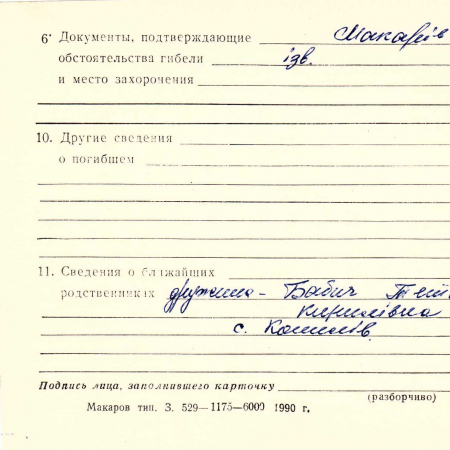 6· Документы, подтверждающие Макарів
обстоятельства гибели ізв.
и место захорочения
10. Другие сведения
о погибшем
11. Сведения о ближайших
родственниках дружина - Бабич
Кирилівна
с. Копилів
Подпись лица, заполнившего карточку
(разборчиво)
Макаров тип. З. 529—1175—6000 1990 г.